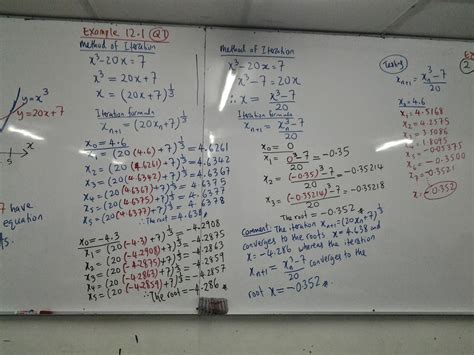 Example 12.1 Q1
Method of Iteration
x³-20x=7
x³ = 20x+7
x = (20x+7)^⅓
Iteration formula
xₙ₊₁ = (20xₙ+7)^⅓
y=x³
y=20x+7
x
5
have
equation
x₀ = 4.6
x₁ = (20(4.6)+7)^⅓ = 4.6261
x₂ = (20(4.6261)+7)^⅓ = 4.6342
x₃ = (20(4.6342)+7)^⅓ = 4.6367
x₄ = (20(4.6367)+7)^⅓ = 4.6375
x₅ = (20(4.6375)+7)^⅓ = 4.6377
∴ The root = 4.638
x₀ = -4.3
x₁ = (20(-4.3)+7)^⅓ = -4.2908
x₂ = (20(-4.2908)+7)^⅓ = -4.2875
x₃ = (20(-4.2875)+7)^⅓ = -4.2863
x₄ = (20(-4.2863)+7)^⅓ = -4.2859
x₅ = (20(-4.2859)+7)^⅓ = -4.2857
∴ The root = -4.286
Method of Iteration
x³-20x=7
x³-7=20x
∴ x = (x³-7)/20
Iteration formula
xₙ₊₁ = (xₙ³-7)/20
x₀ = 0
x₁ = (0³-7)/20 = -0.35
x₂ = ((-0.35)³-7)/20 = -0.35214
x₃ = ((-0.35214)³-7)/20 = -0.35218
The root = -0.352
Comment: The iteration xₙ₊₁=(20xₙ+7)^⅓
converges to the roots x=4.638 and
x=-4.286 whereas the iteration
xₙ₊₁ = (xₙ³-7)/20 converges to the
root x=-0.352
xₙ₊₁ = (xₙ³-7)/20
x₀=4.6
x₁=4.5168
x₂=4.2575
x₃=3.5086
x₄=1.8095